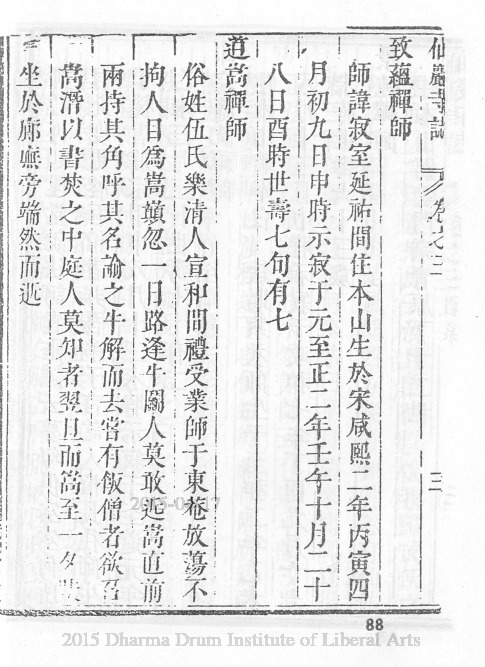 仙巖寺誌 卷之三 三
致蘊禪師
師諱寂室延祐間住本山生於宋咸熙二年丙寅四
月初九日申時示寂于元至正二年壬午十月二十
八日酉時世壽七旬有七
道嵩禪師
俗姓伍氏樂清人宣和間禮受業師于東菴放蕩不
拘人目為嵩顛忽一日路逢牛鬭人莫敢近嵩直前
兩持其角呼其名諭之牛解而去寄有飯僧者欲召
嵩潛以書焚之中庭人莫知者翌旦而嵩至一夕
坐於廊廡旁端然而逝
2015-04-17
88
2015 Dharma Drum Institute of Liberal Arts